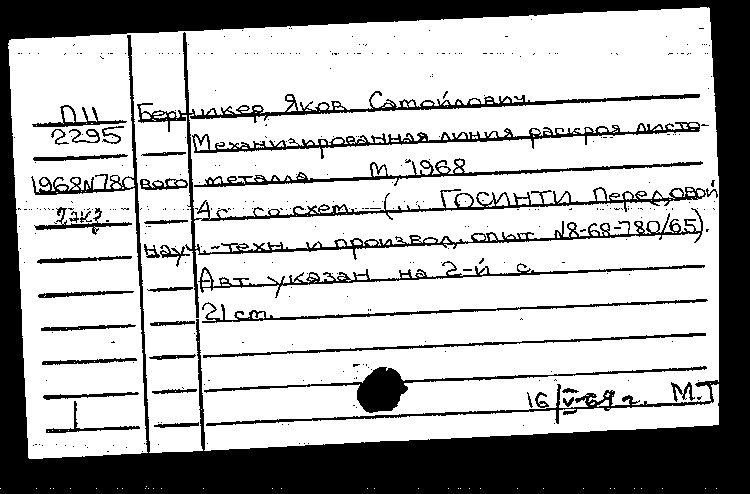 П11 Берникер, Яков Самойлович.
2295 Механизированная линия раскроя листо-
1968N780 вого металла. М, 1968
2 экз. 4с со схем. (... ГОСИНТИ Передовой
науч.-техн. и производ. опыт №8-68-780/65).
Авт. указан на 2-й с.
21 см.
16/V-69 г. М.Т